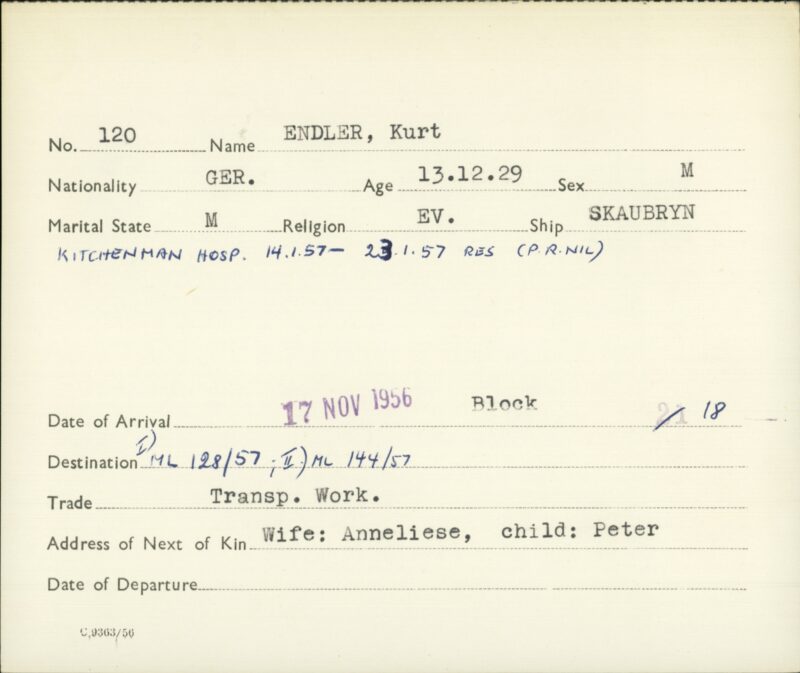 No. 120 Name ENDLER, Kurt
Nationality GER. Age 13.12.29 Sex M
Marital State M Religion EV. Ship SKAUBRYN
KITCHENMAN HOSP. 14.1.57 – 23.1.57 RES (P.R.NIL)
Date of Arrival 17 NOV 1956 Block 21 / 18
Destination I) ML 128/57 ; II) ML 144/57
Trade Transp. Work.
Address of Next of Kin Wife: Anneliese, child: Peter
Date of Departure
C.9363/56